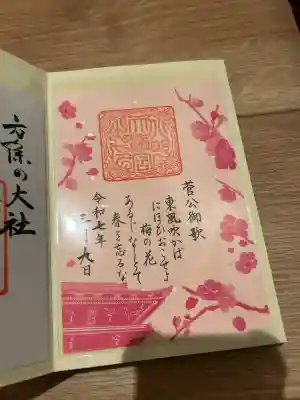 菅公御歌
東風吹かば
にほひおこせよ
梅の花
あるじなしとて
春を忘るな
令和七年
九日
方除の大社